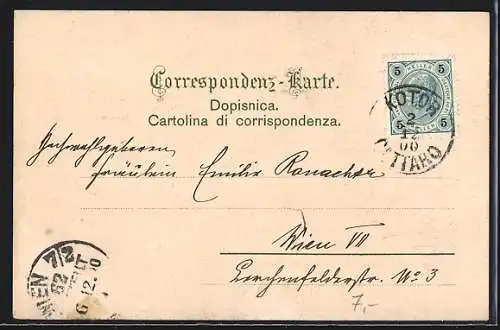 Correspondenz-Karte.
Dopisnica.
Cartolina di corrispondenza.
5 5
5 5
KOTOR
2
12
00
CATTARO
Hochwohlgeboren
Fräulein Emilie Ronacher
Wien VII
Lerchenfelderstr. No 3
7,-
WIEN 7/2
62
6 12 00